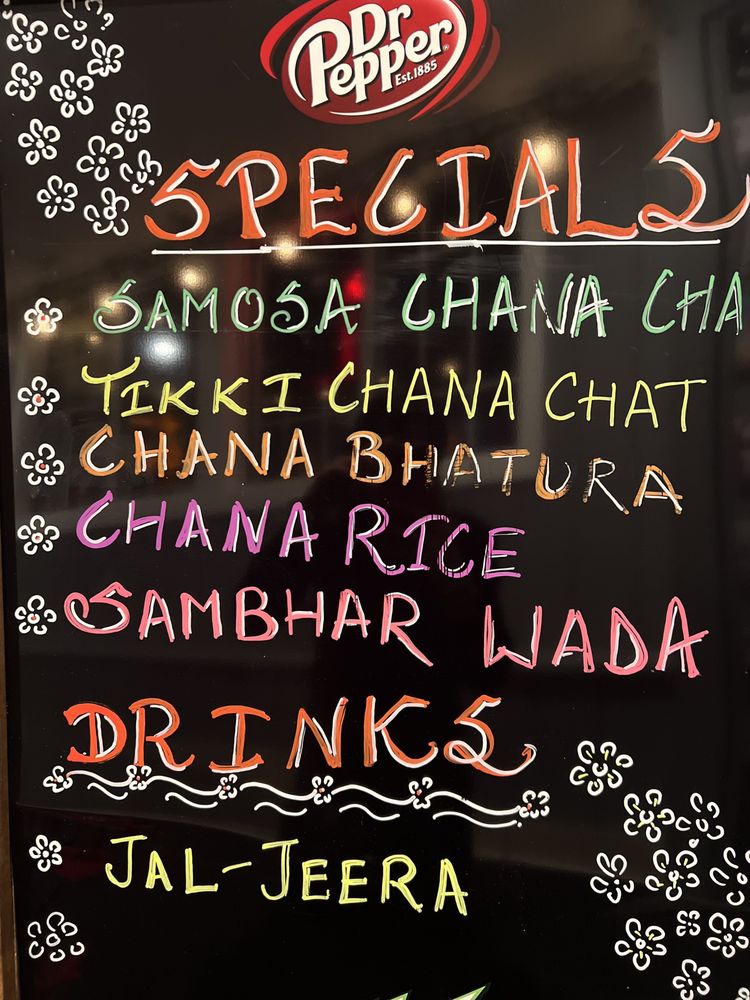 Dr Pepper
Est. 1885
SPECIALS
SAMOSA CHANA CHA
TIKKI CHANA CHAT
CHANA BHATURA
CHANA RICE
SAMBHAR WADA
DRINKS
JAL-JEERA